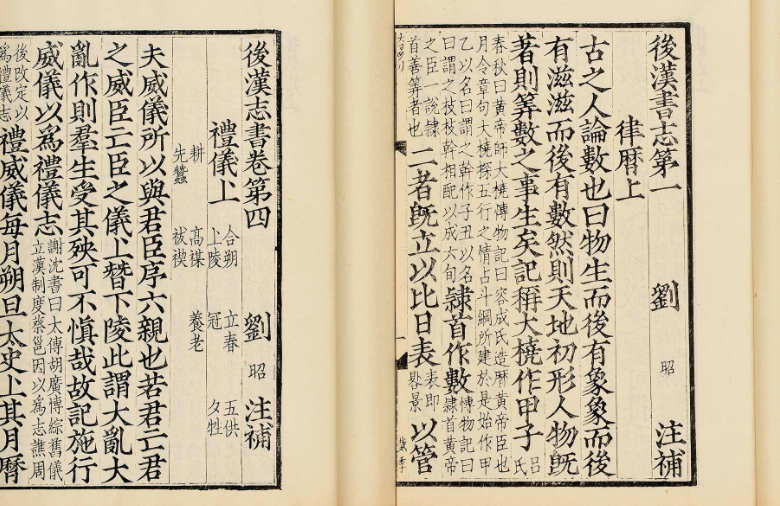 後漢書志第一 劉昭注補
律暦上
古之人論數也曰物生而後有象象而後
有滋滋而後有數然則天地初形人物旣
著則筭數之事生矣記稱大橈作甲子呂氏
春秋曰黃帝師大橈博物記曰容成氏造曆黃帝臣也
月令章句大橈探五行之情占斗綱所建於是始作甲
乙以名日謂之幹作子丑以名
日謂之枝枝幹相配以成六旬隷首作數博物記曰隷首黃帝
之臣一說隷首善筭者也二者旣立以比日表表即晷景以管
後漢志書卷第四 劉昭注補
禮儀上 合朔 立春 五供
上陵 冠 夕牲
耕 高禖 養老
先蠶 祓禊
夫威儀所以與君臣序六親也若君亡君
之威臣亡臣之儀上替下陵此謂大亂大
亂作則羣生受其殃可不慎哉故記施行
威儀以爲禮儀志謝沈書曰太傅胡廣博綜舊儀立漢制度蔡邕因以爲志譙周
後改定以爲禮儀志禮威儀每月朔旦太史上其月曆